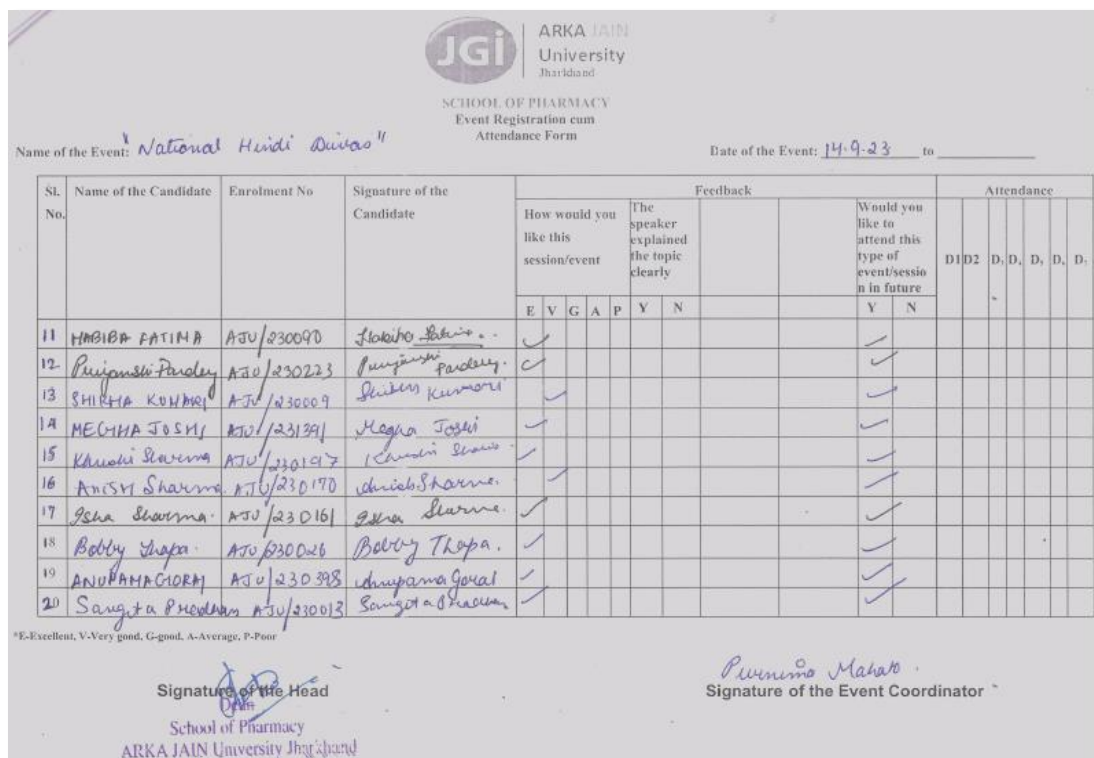 JGi ARKA JAIN
University
Jharkhand
SCHOOL OF PHARMACY
Event Registration cum
Attendance Form
Name of the Event: "National Hindi Divas"
Date of the Event: 14.9.23 to
Sl. No. Name of the Candidate Enrolment No Signature of the Candidate Feedback Attendance
How would you like this session/event The speaker explained the topic clearly Would you like to attend this type of event/session in future D1 D2 D, D, D, D, D,
E V G A P Y N Y N
11 HABIBA FATIMA AJU/230090 Habiba Fatima
12 Punjanshi Pandey AJU/230223 Punjanshi Pandey.
13 SHIKHA KUMARI AJU/230009 Shikha Kumari
14 MEGHA JOSHI AJU/231391 Megha Joshi
15 Khushi Sharma AJU/230197 Khushi Sharma
16 Anish Sharma. AJU/230170 Anish Sharma.
17 Isha Sharma. AJU/230161 Isha Sharma.
18 Bobby Thapa. AJU/230026 Bobby Thapa.
19 ANUPAMA GORAI AJU/230398 Anupama Gorai
20 Sangita Pradhan AJU/230013 Sangita Pradhan
*E-Excellent, V-Very good, G-good, A-Average, P-Poor
Purnima Mahato.
Signature of the Head Signature of the Event Coordinator
Dean
School of Pharmacy
ARKA JAIN University Jharkhand